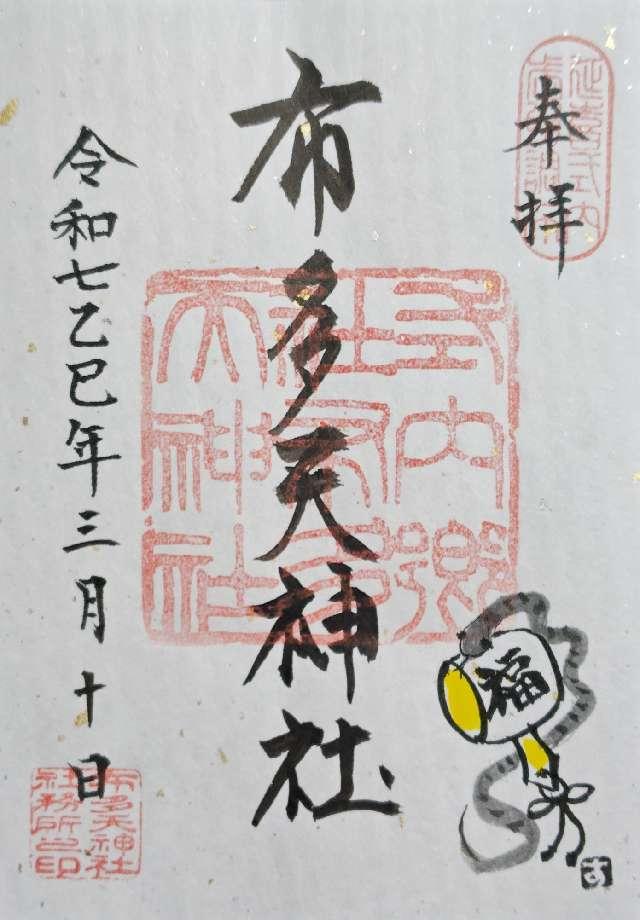 奉拝
延喜式内
布多天神社
式内郷
社布多
天神社
令和七乙巳年三月十日
布多天神社
社務所之印
福